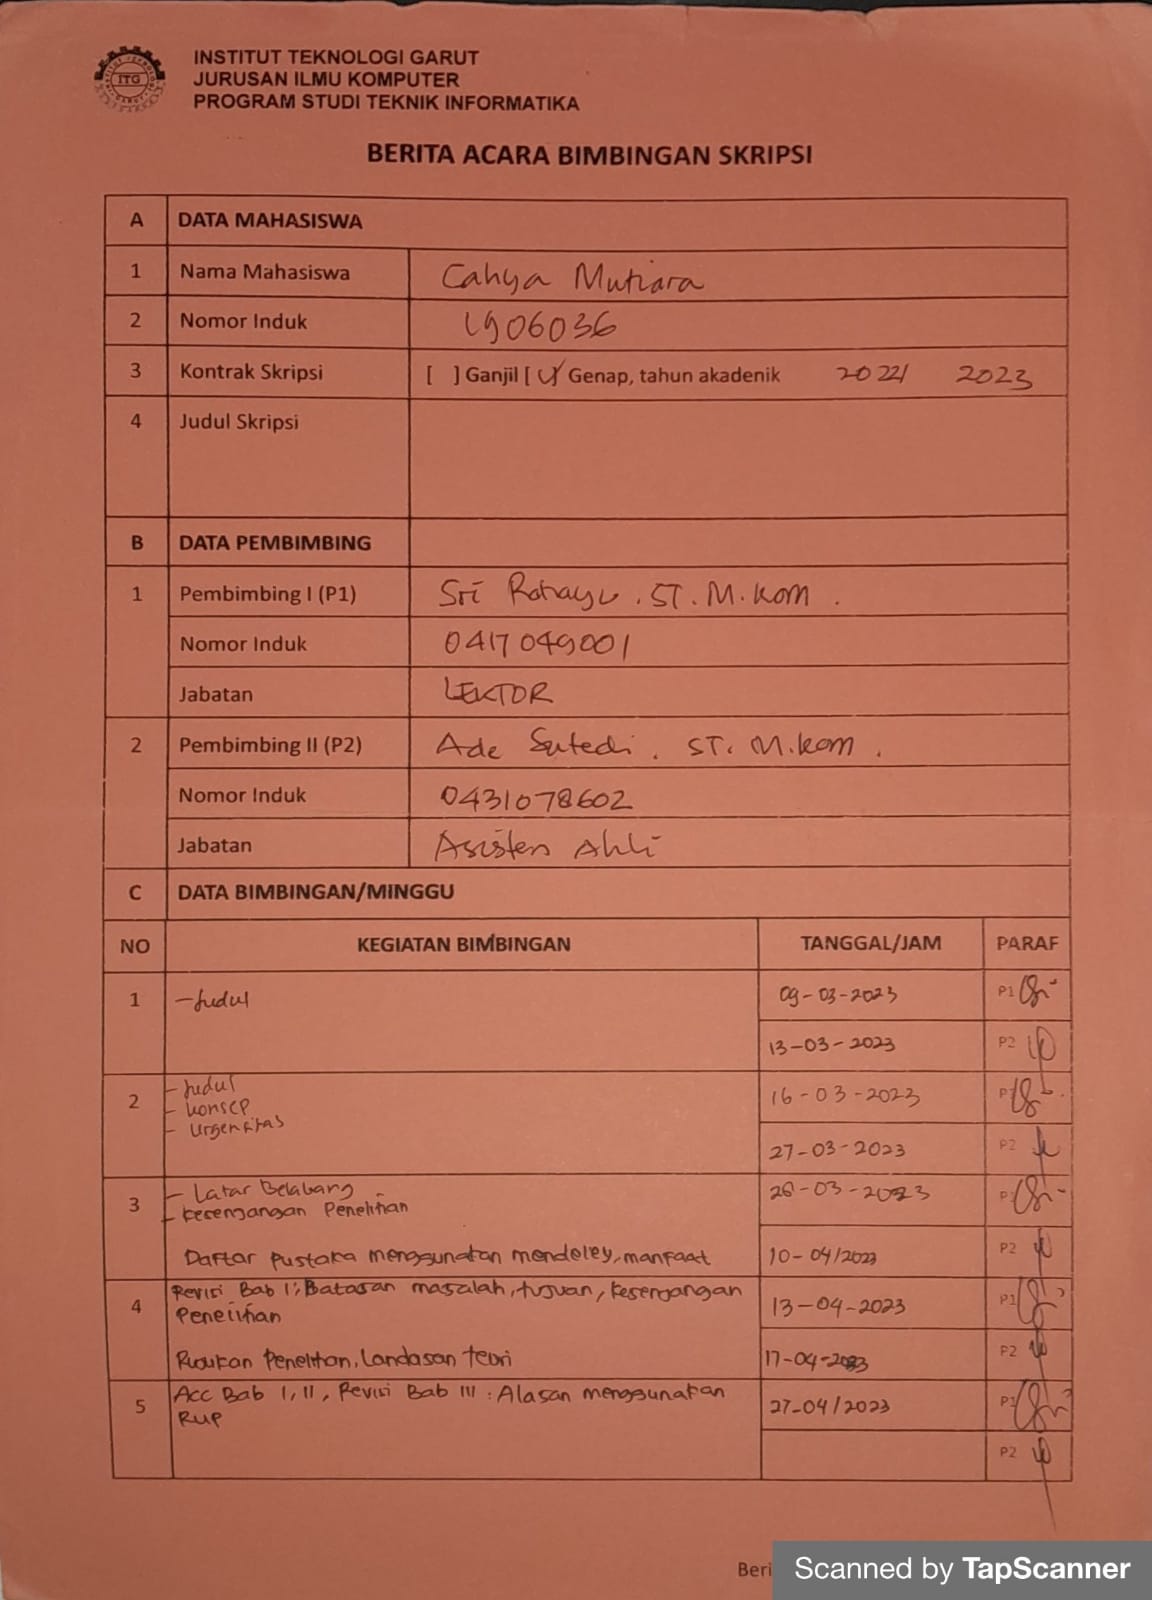 ITG
INSTITUT TEKNOLOGI GARUT
JURUSAN ILMU KOMPUTER
PROGRAM STUDI TEKNIK INFORMATIKA
BERITA ACARA BIMBINGAN SKRIPSI
A DATA MAHASISWA
1 Nama Mahasiswa Cahya Mutiara
2 Nomor Induk 1906036
3 Kontrak Skripsi [ ] Ganjil [ ✓] Genap, tahun akadenik 2022/ 2023
4 Judul Skripsi
B DATA PEMBIMBING
1 Pembimbing I (P1) Sri Rahayu. ST. M.Kom.
Nomor Induk 0417049001
Jabatan LEKTOR
2 Pembimbing II (P2) Ade Sutedi. ST. M.Kom.
Nomor Induk 0431078602
Jabatan Asisten Ahli
C DATA BIMBINGAN/MINGGU
NO KEGIATAN BIMBINGAN TANGGAL/JAM PARAF
1 - Judul 09-03-2023 P1
13-03-2023 P2
2 - Judul 16-03-2023 P1
- Konsep
- Urgensitas
27-03-2023 P2
3 - Latar Belakang -03-2023 P1
- Kesenjangan Penelitian
Daftar Pustaka menggunakan mendeley, manfaat 10-04/2023 P2
4 Revisi Bab I: Batasan masalah, tujuan, kesenjangan 13-04-2023 P1
Penelitian
Rujukan Penelitian, Landasan teori 17-04-2023 P2
5 Acc Bab I, II, Revisi Bab III : Alasan menggunakan 27-04/2023 P1
RUP
P2
Beri
Scanned by TapScanner